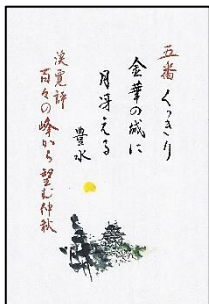 五番 くっきり
金華の城に
月冴える
豊水
渓寛評
百々の峰から望む仲秋